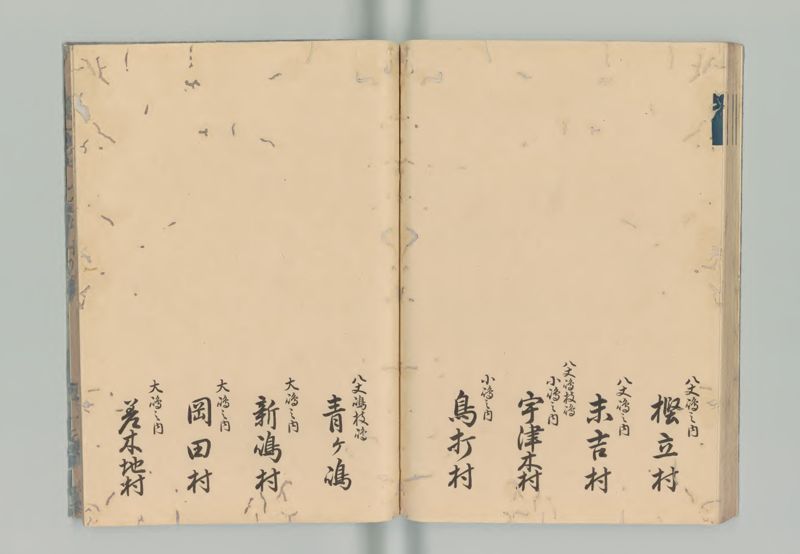 八丈嶋之内
樫立村
八丈嶋之内
末吉村
八丈嶋枝嶋
小嶋之内
宇津木村
小嶋之内
鳥打村
八丈嶋枝嶋
青ヶ嶋
大嶋之内
新嶋村
大嶋之内
岡田村
大嶋之内
差木地村